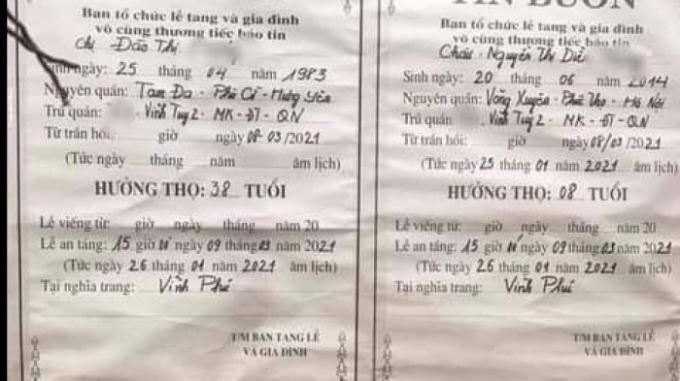 Ban tổ chức lễ tang và gia đình
vô cùng thương tiếc báo tin
Chị Đào Thị
Sinh ngày: 25 tháng 04 năm 1983
Nguyên quán: Tam Đa - Phù Cừ - Hưng Yên
Trú quán: Vĩnh Tuy 2 - MK - ĐT - QN
Từ trần hồi: giờ ngày 08-03/2021
(Tức ngày tháng năm âm lịch)
HƯỞNG THỌ: 38 TUỔI
Lễ viếng từ: giờ ngày tháng năm 20
Lễ an táng: 15 giờ ngày 09 tháng 03 năm 2021
(Tức ngày 26 tháng 01 năm 2021 âm lịch)
Tại nghĩa trang: Vĩnh Phú
T/M BAN TANG LỄ
VÀ GIA ĐÌNH
TIN BUỒN
Ban tổ chức lễ tang và gia đình
vô cùng thương tiếc báo tin
Cháu - Nguyễn Thị Diệu
Sinh ngày: 20 tháng 06 năm 2014
Nguyên quán: Võng Xuyên - Phúc Thọ - Hà Nội
Trú quán Vĩnh Tuy 2 - MK - ĐT - QN
Từ trần hồi: giờ ngày 08/03/2021
(Tức ngày 25 tháng 01 năm 2021 âm lịch)
HƯỞNG THỌ: 08 TUỔI
Lễ viếng từ: giờ ngày tháng năm 20
Lễ an táng: 15 giờ ngày 09 tháng 03 năm 2021
(Tức ngày 26 tháng 01 năm 2021 âm lịch)
Tại nghĩa trang: Vĩnh Phú
T/M BAN TANG LỄ
VÀ GIA ĐÌNH